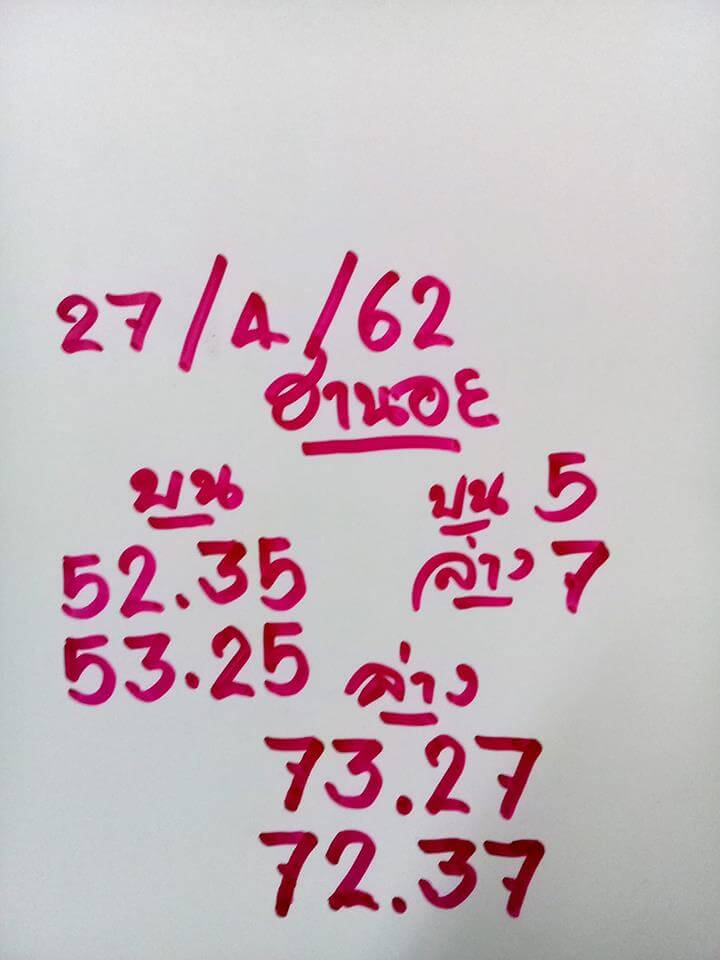 27/4/62
ฮานอย
บน
52.35
53.25
บน 5
ล่าง 7
ล่าง
73.27
72.37